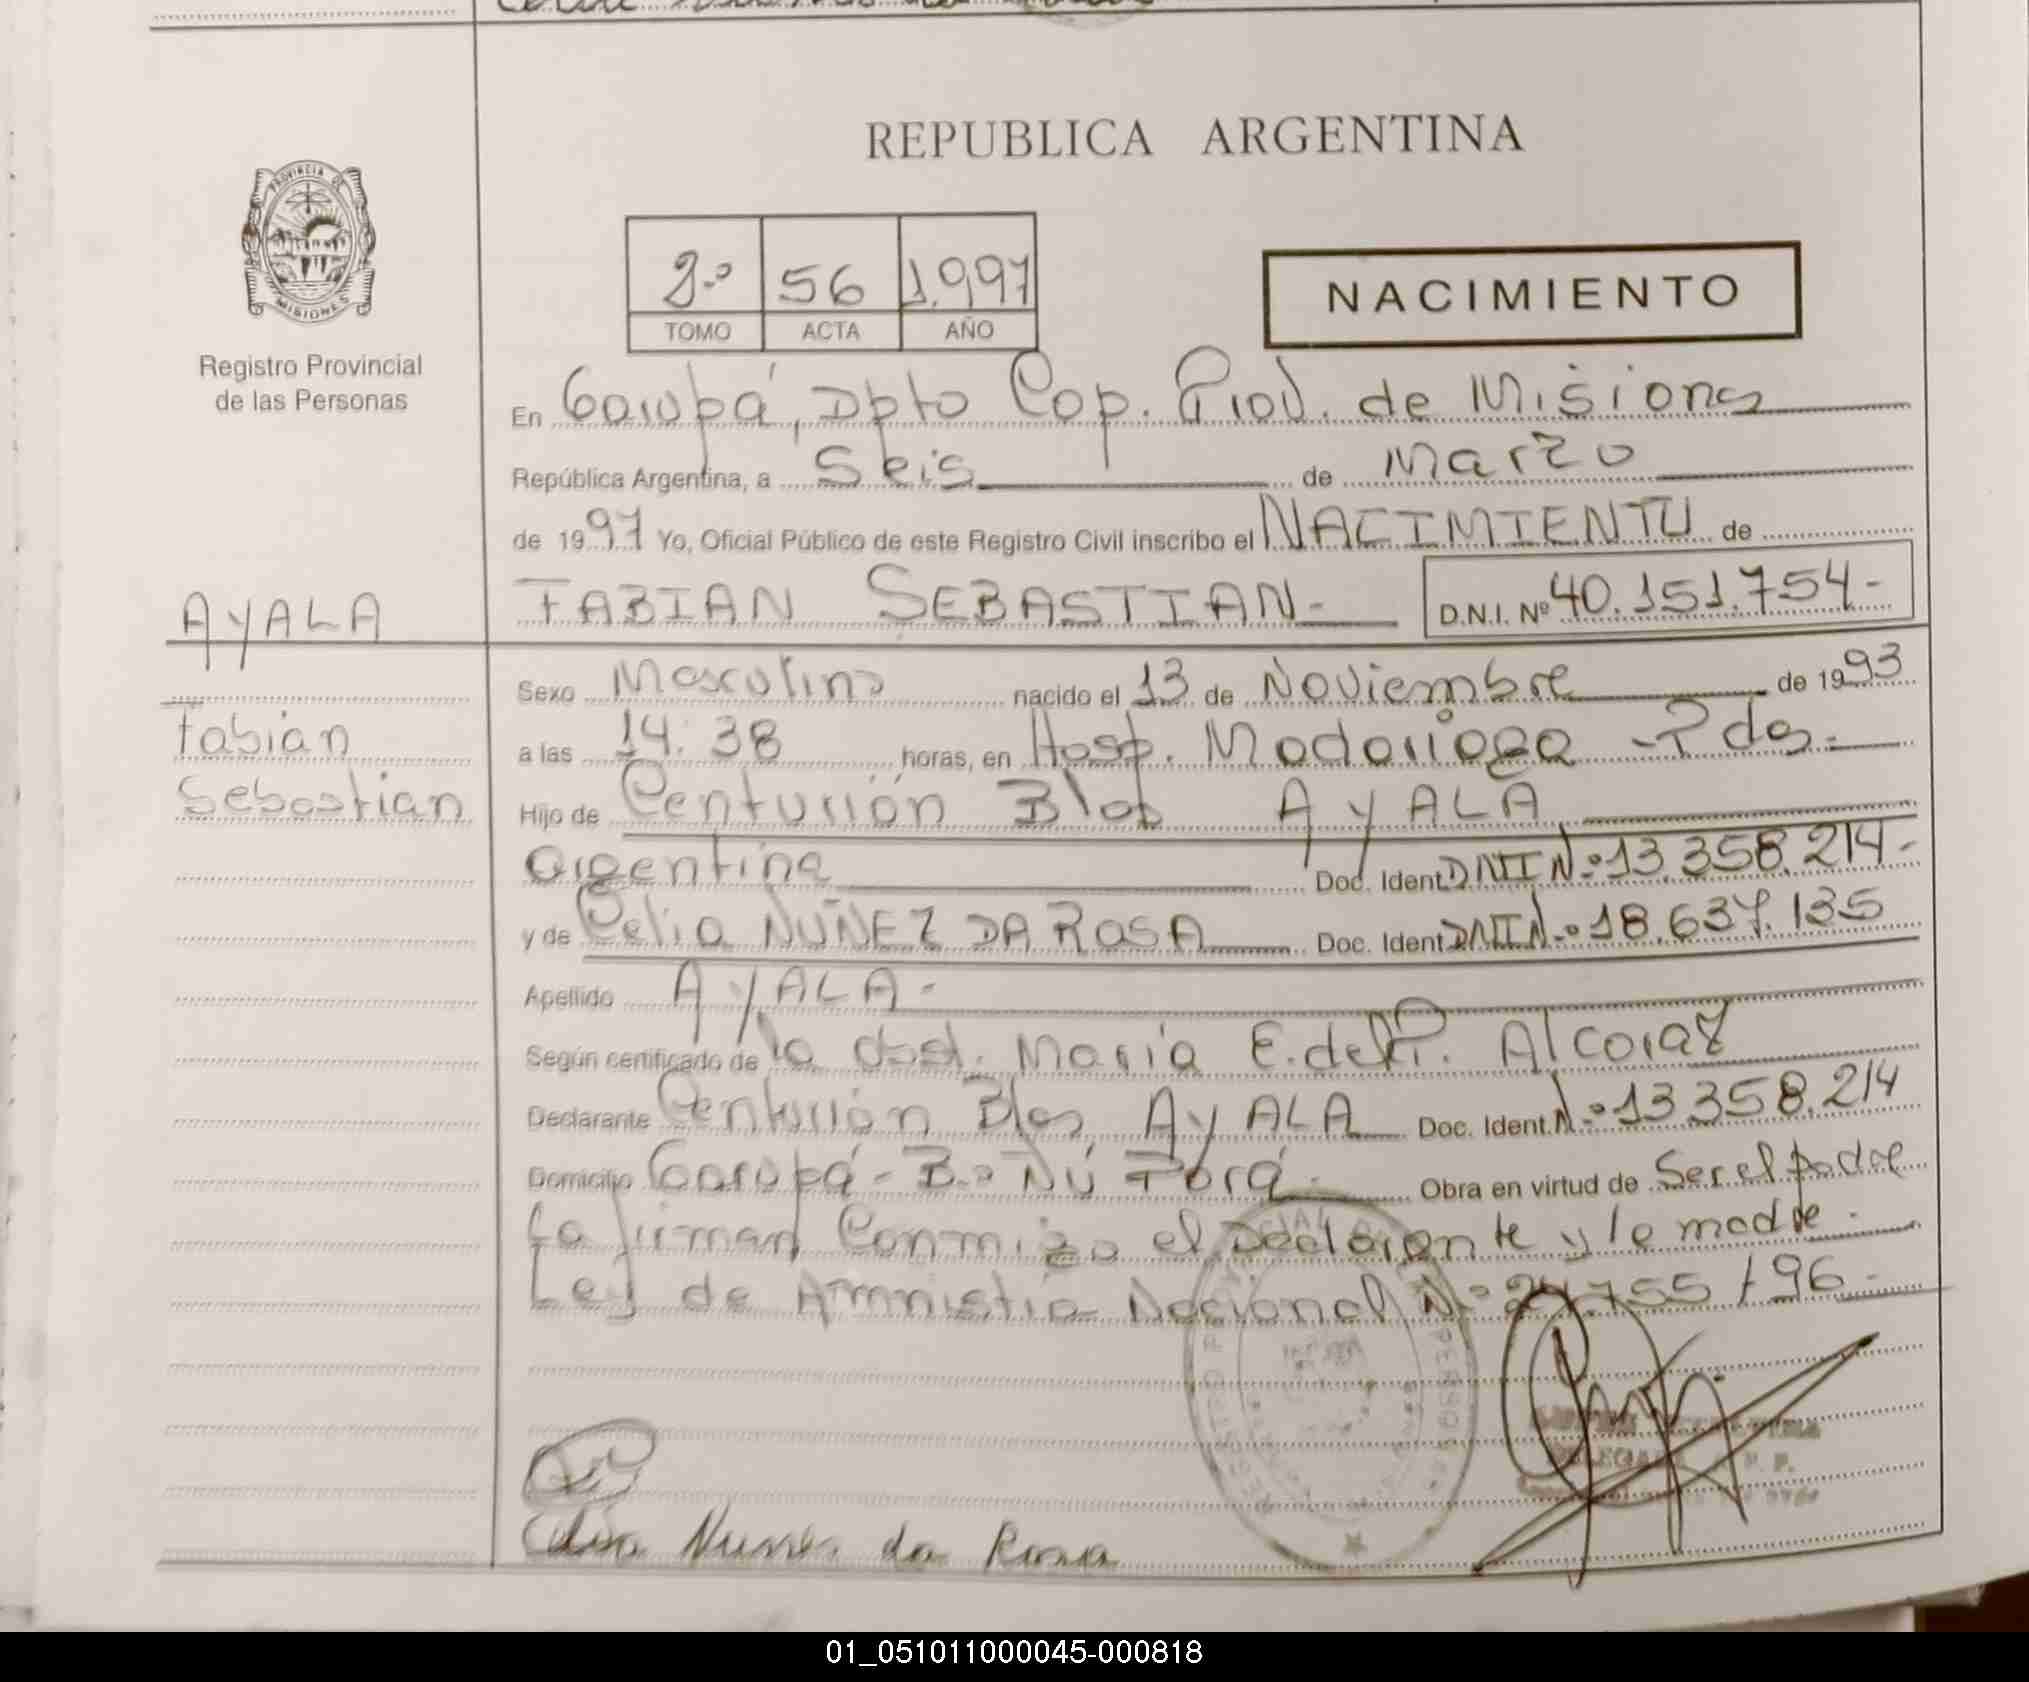 REPUBLICA ARGENTINA
PROVINCIA DE
MISIONES
Registro Provincial
de las Personas
2.º 56 1.997
TOMO ACTA AÑO
NACIMIENTO
En Garupá, Dpto Cap. Prov. de Misiones
República Argentina, a Seis de Marzo
de 1997 Yo, Oficial Público de este Registro Civil inscribo el NACIMIENTO de
AYALA
FABIAN SEBASTIAN- D.N.I. Nº 40.151.754-
Sexo Masculino nacido el 13 de Noviembre de 1993
Fabián
a las 14:38 horas, en Hosp. Madariaga - Pdas.-
Sebastian
Hijo de Centurión Blas AYALA
Argentina Doc. Ident. DNI N.º 13.358.214-
y de Celia NUÑEZ DA ROSA Doc. Ident. DNI N.º 18.637.135
Apellido AYALA-
Según certificado de la obst. María E. del P. Alcaraz
Declarante Centurión Blas AYALA Doc. Ident. N.º 13.358.214
Domicilio Garupá - B.º Ñú Porá- Obra en virtud de Ser el padre
La firman Conmigo el Declarante y la madre.
Ley de Amnistia Nacional N.º 24.755/96-
Celia Nunes da Rosa
01_051011000045-000818